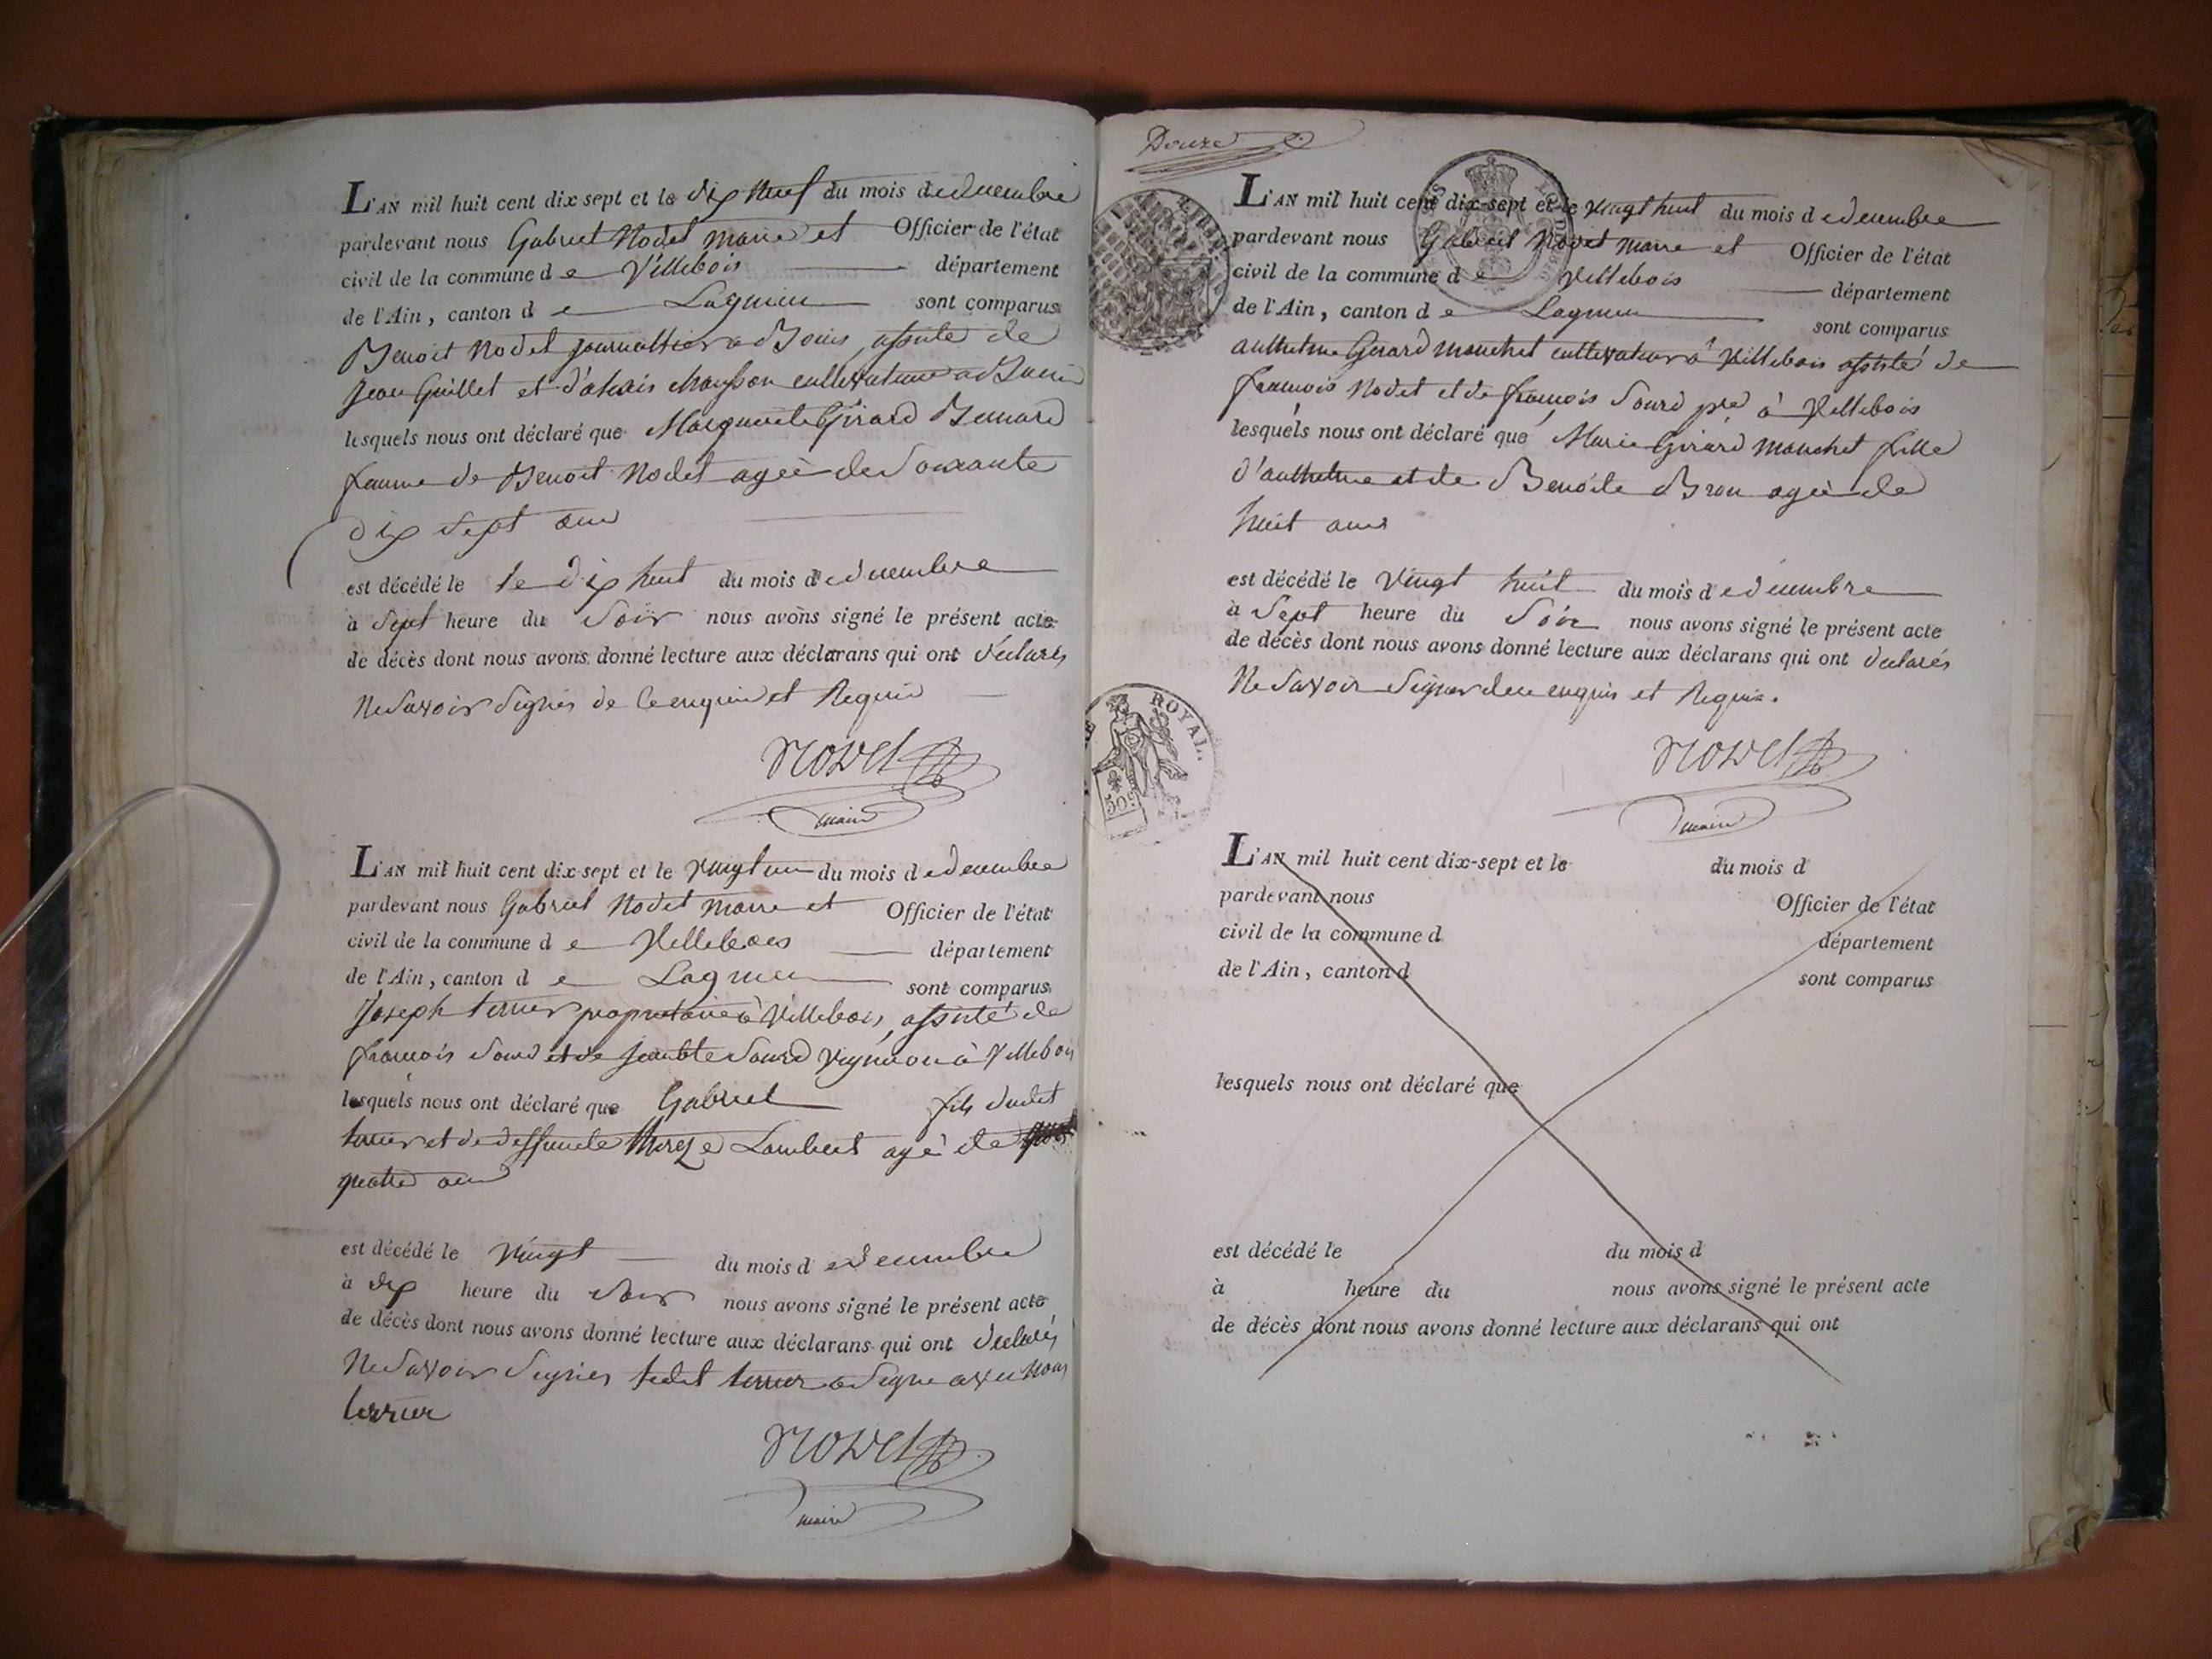 L'AN mil huit cent dix-sept et le dix neuf du mois de decembre
pardevant nous Gabriel Nodet maire et Officier de l'état
civil de la commune de Villebois département
de l'Ain, canton de Lagnieu sont comparus
Benoit Nodet journallier a Bouis, assisté de
Jean Guillet et d' cultivateurs a
lesquels nous ont déclaré que Marguerite Girard Bernard
femme de Benoit Nodet agée de Soixante
dix Sept ans
est décédé le le dix huit du mois de decembre
à Sept heure du Soir nous avons signé le présent acte
de décès dont nous avons donné lecture aux déclarans qui ont déclarés
Ne Savoir Signer de ce enquis et Requis
NODET
maire
L'AN mil huit cent dix-sept et le vingt un du mois de decembre
pardevant nous Gabriel Nodet maire et Officier de l'état
civil de la commune de Villebois département
de l'Ain, canton de Lagnieu sont comparus
Joseph terrier propriétaire à Villebois, assisté de
françois Sourd et de Sourd vigneron à Villebois
lesquels nous ont déclaré que Gabriel fils dudit
terrier et de deffuncte Lambert agé de
quatre ans
est décédé le vingt du mois de decembre
à dix heure du Soir nous avons signé le présent acte
de décès dont nous avons donné lecture aux déclarans qui ont déclarés
Ne Savoir Signer ledit terrier a Signé avec Nous
terrier
NODET
maire
Douze
ROYAL.
50c
L'AN mil huit cent dix-sept et le vingt huit du mois de decembre
pardevant nous Gabriel Nodet maire et Officier de l'état
civil de la commune de Villebois département
de l'Ain, canton de Lagnieu sont comparus
anthelme Girard mouchet cultivateur à Villebois assisté de
françois Nodet et de françois Sourd pre à Villebois
lesquels nous ont déclaré que Marie Girard mouchet fille
d'anthelme et de Benoite Bron agée de
huit ans
est décédé le vingt huit du mois de decembre
à Sept heure du Soir nous avons signé le présent acte
de décès dont nous avons donné lecture aux déclarans qui ont declarés
Ne Savoir Signer de ce enquis et Requis.
NODET
maire
L'AN mil huit cent dix-sept et le du mois d
pardevant nous Officier de l'état
civil de la commune d département
de l'Ain, canton d sont comparus
lesquels nous ont déclaré que
est décédé le du mois d
à heure du nous avons signé le présent acte
de décès dont nous avons donné lecture aux déclarans qui ont